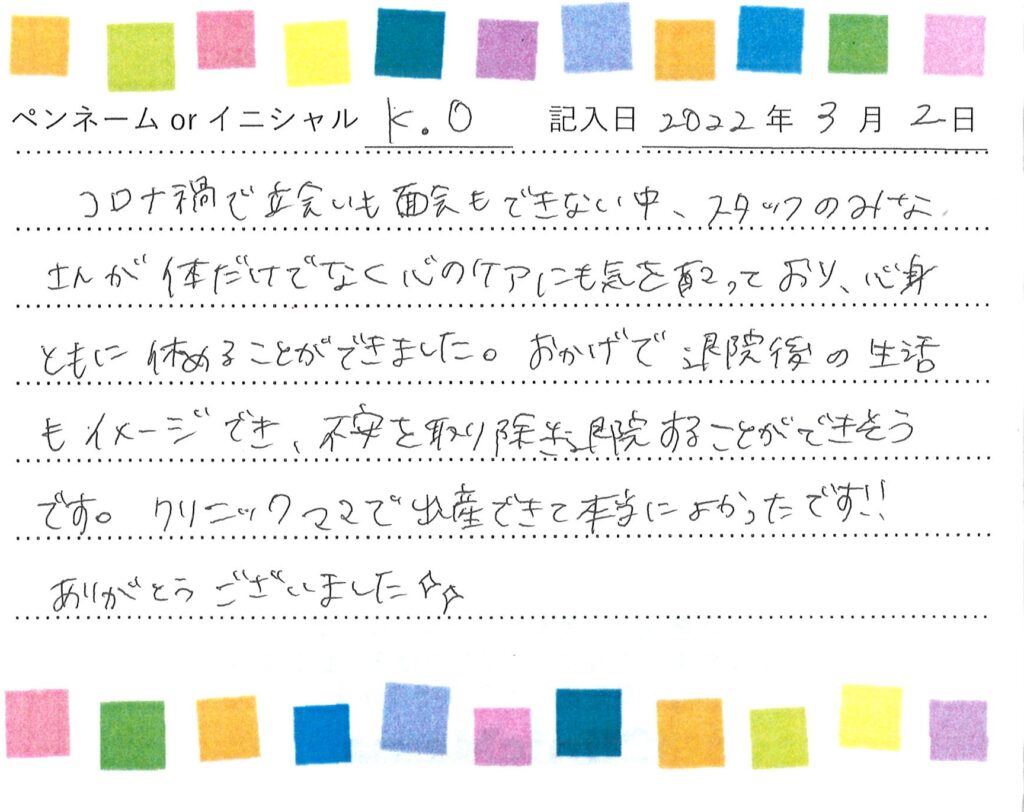 ペンネーム or イニシャル K.O 記入日 2022 年 3 月 2 日
コロナ禍で立会いも面会もできない中、スタッフのみな
さんが体だけでなく心のケアにも気を配っており、心身
ともに休めることができました。おかげで退院後の生活
もイメージでき、不安を取り除き退院することができそう
です。クリニックママで出産できて本当によかったです!!
ありがとうございました☆☆